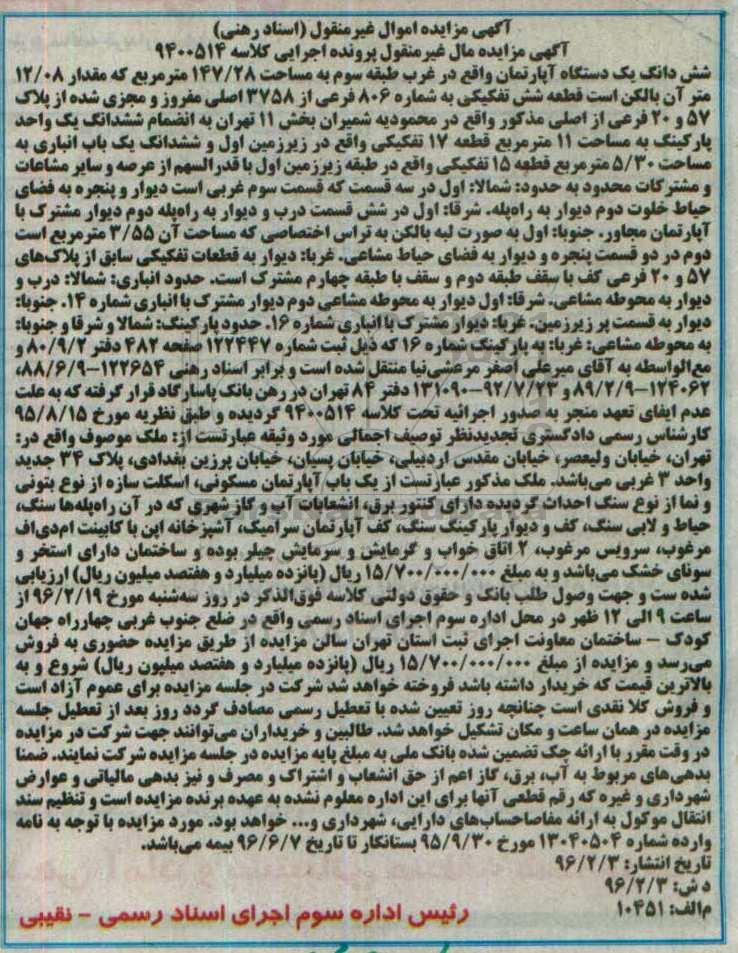 آگهی مزایده اموال غیرمنقول (اسناد رهنی)
آگهی مزایده مال غیرمنقول پرونده اجرایی کلاسه ۹۴۰۰۵۱۴
شش دانگ یک دستگاه آپارتمان واقع در غرب طبقه سوم به مساحت ۱۴۷/۲۸ مترمربع که مقدار ۱۲/۰۸
متر آن بالکن است قطعه شش تفکیکی به شماره ۸۰۶ فرعی از ۳۷۵۸ اصلی مفروز و مجزی شده از پلاک
۵۷ و ۲۰ فرعی از اصلی مذکور واقع در محمودیه شمیران بخش ۱۱ تهران به انضمام ششدانگ یک واحد
پارکینگ به مساحت ۱۱ مترمربع قطعه ۱۷ تفکیکی واقع در زیرزمین اول و ششدانگ یک باب انباری به
مساحت ۵/۳۰ مترمربع قطعه ۱۵ تفکیکی واقع در طبقه زیرزمین اول با قدرالسهم از عرصه و سایر مشاعات
و مشترکات محدود به حدود: شمالا: اول در سه قسمت که قسمت سوم غربی است دیوار و پنجره به فضای
حیاط خلوت دوم دیوار به راه‌پله. شرقا: اول در شش قسمت درب و دیوار به راه‌پله دوم دیوار مشترک با
آپارتمان مجاور. جنوبا: اول به صورت لبه بالکن به تراس اختصاصی که مساحت آن ۳/۵۵ مترمربع است
دوم در دو قسمت پنجره و دیوار به فضای حیاط مشاعی. غربا: دیوار به قطعات تفکیکی سابق از پلاک‌های
۵۷ و ۲۰ فرعی کف با سقف طبقه دوم و سقف با طبقه چهارم مشترک است. حدود انباری: شمالا: درب و
دیوار به محوطه مشاعی. شرقا: اول دیوار به محوطه مشاعی دوم دیوار مشترک با انباری شماره ۱۴. جنوبا:
دیوار به قسمت پر زیرزمین. غربا: دیوار مشترک با انباری شماره ۱۶. حدود پارکینگ: شمالا و شرقا و جنوبا:
به محوطه مشاعی: غربا: به پارکینگ شماره ۱۶ که ذیل ثبت شماره ۱۲۲۴۴۷ صفحه ۴۸۲ دفتر ۸۰/۹/۲ و
مع‌الواسطه به آقای میرعلی اصغر مرعشی‌نیا منتقل شده است و برابر اسناد رهنی ۱۲۲۶۵۴-۸۸/۶/۹،
۱۲۴۰۶۲-۸۹/۲/۹ و ۹۲/۷/۲۳-۱۳۱۰۹۰ دفتر ۸۴ تهران در رهن بانک پاسارگاد قرار گرفته که به علت
عدم ایفای تعهد منجر به صدور اجرائیه تحت کلاسه ۹۴۰۰۵۱۴ گردیده و طبق نظریه مورخ ۹۵/۸/۱۵
کارشناس رسمی دادگستری تجدیدنظر توصیف اجمالی مورد وثیقه عبارتست از: ملک موصوف واقع در:
تهران، خیابان ولیعصر، خیابان مقدس اردبیلی، خیابان پسیان، خیابان پرزین بغدادی، پلاک ۳۴ جدید
واحد ۳ غربی می‌باشد. ملک مذکور عبارتست از یک باب آپارتمان مسکونی، اسکلت سازه از نوع بتونی
و نما از نوع سنگ احداث گردیده دارای کنتور برق، انشعابات آب و گاز شهری که در آن راه‌پله‌ها سنگ،
حیاط و لابی سنگ، کف و دیوار پارکینگ سنگ، کف آپارتمان سرامیک، آشپزخانه اپن با کابینت ام‌دی‌اف
مرغوب، سرویس مرغوب، ۲ اتاق خواب و گرمایش و سرمایش چیلر بوده و ساختمان دارای استخر و
سونای خشک می‌باشد و به مبلغ ۱۵/۷۰۰/۰۰۰/۰۰۰ ریال (پانزده میلیارد و هفتصد میلیون ریال) ارزیابی
شده ست و جهت وصول طلب بانک و حقوق دولتی کلاسه فوق‌الذکر در روز سه‌شنبه مورخ ۹۶/۲/۱۹ از
ساعت ۹ الی ۱۲ ظهر در محل اداره سوم اجرای اسناد رسمی واقع در ضلع جنوب غربی چهارراه جهان
کودک – ساختمان معاونت اجرای ثبت استان تهران سالن مزایده از طریق مزایده حضوری به فروش
می‌رسد و مزایده از مبلغ ۱۵/۷۰۰/۰۰۰/۰۰۰ ریال (پانزده میلیارد و هفتصد میلیون ریال) شروع و به
بالاترین قیمت که خریدار داشته باشد فروخته خواهد شد شرکت در جلسه مزایده برای عموم آزاد است
و فروش کلا نقدی است چنانچه روز تعیین شده با تعطیل رسمی مصادف گردد روز بعد از تعطیل جلسه
مزایده در همان ساعت و مکان تشکیل خواهد شد. طالبین و خریداران می‌توانند جهت شرکت در مزایده
در وقت مقرر با ارائه چک تضمین شده بانک ملی به مبلغ پایه مزایده در جلسه مزایده شرکت نمایند. ضمنا
بدهی‌های مربوط به آب، برق، گاز اعم از حق انشعاب و اشتراک و مصرف و نیز بدهی مالیاتی و عوارض
شهرداری و غیره که رقم قطعی آنها برای این اداره معلوم نشده به عهده برنده مزایده است و تنظیم سند
انتقال موکول به ارائه مفاصاحساب‌های دارایی، شهرداری و... خواهد بود. مورد مزایده با توجه به نامه
وارده شماره ۱۳۰۴۰۵۰۴ مورخ ۹۵/۹/۳۰ بستانکار تا تاریخ ۹۶/۶/۷ بیمه می‌باشد.
تاریخ انتشار: ۹۶/۲/۳
د ش: ۹۶/۲/۳
م‌الف: ۱۰۴۵۱
رئیس اداره سوم اجرای اسناد رسمی - نقیبی